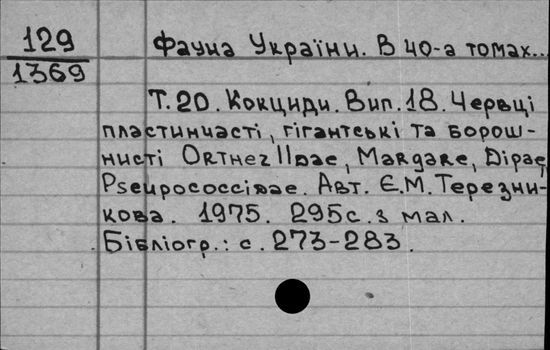 129
1369
Фауна України. В 40-а томах...
Т. 20. Кокциди. Вип. 18. Червці
пластинчасті, гігантські та борош-
нисті Orthezllдae, Margaкe, Dipae,
Pseupococciдae. Авт. Є.М. Терезни-
кова. 1975. 295с. з мал.
Бібліогр.: с. 273-283.